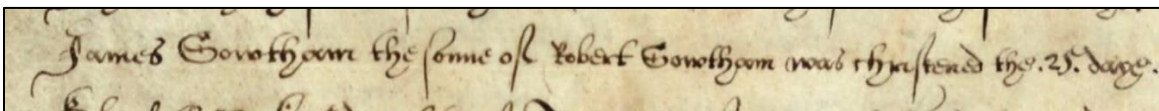 James Gowtham the sonne of Robert Gowtham was christened the .25. daye.